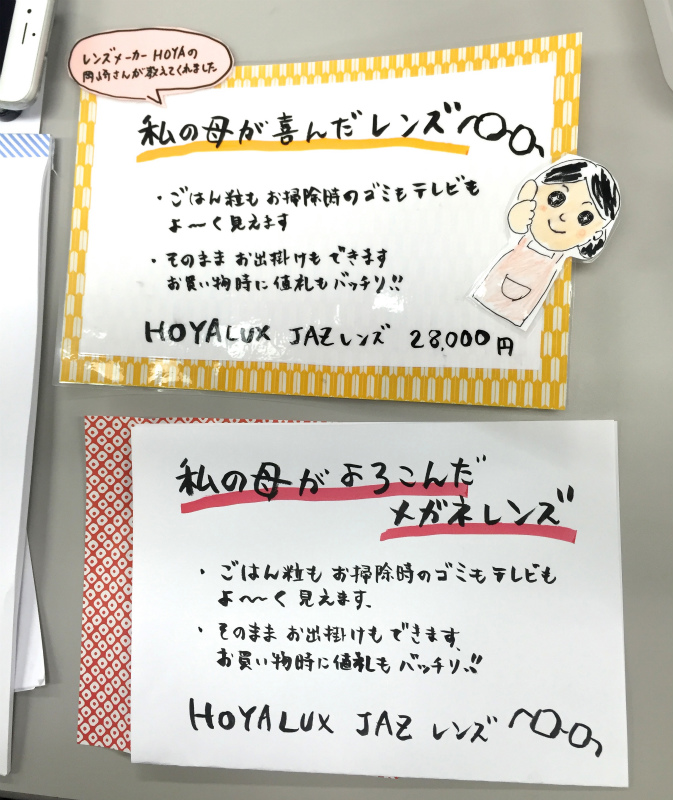 レンズメーカー HOYAの
岡崎さんが教えてくれました
私の母が喜んだレンズ
・ごはん粒も お掃除時のゴミもテレビも
よ〜〜く見えます
・そのまま お出掛けも できます
お買い物時に値札もバッチリ!!
HOYALUX JAZ レンズ 28,000円
私の母がよろこんだ
メガネレンズ
・ごはん粒も お掃除時のゴミもテレビも
よ〜〜く 見えます、
・そのまま お出掛けも できます、
お買い物時に値札も バッチリ!!
HOYALUX JAZ レンズ